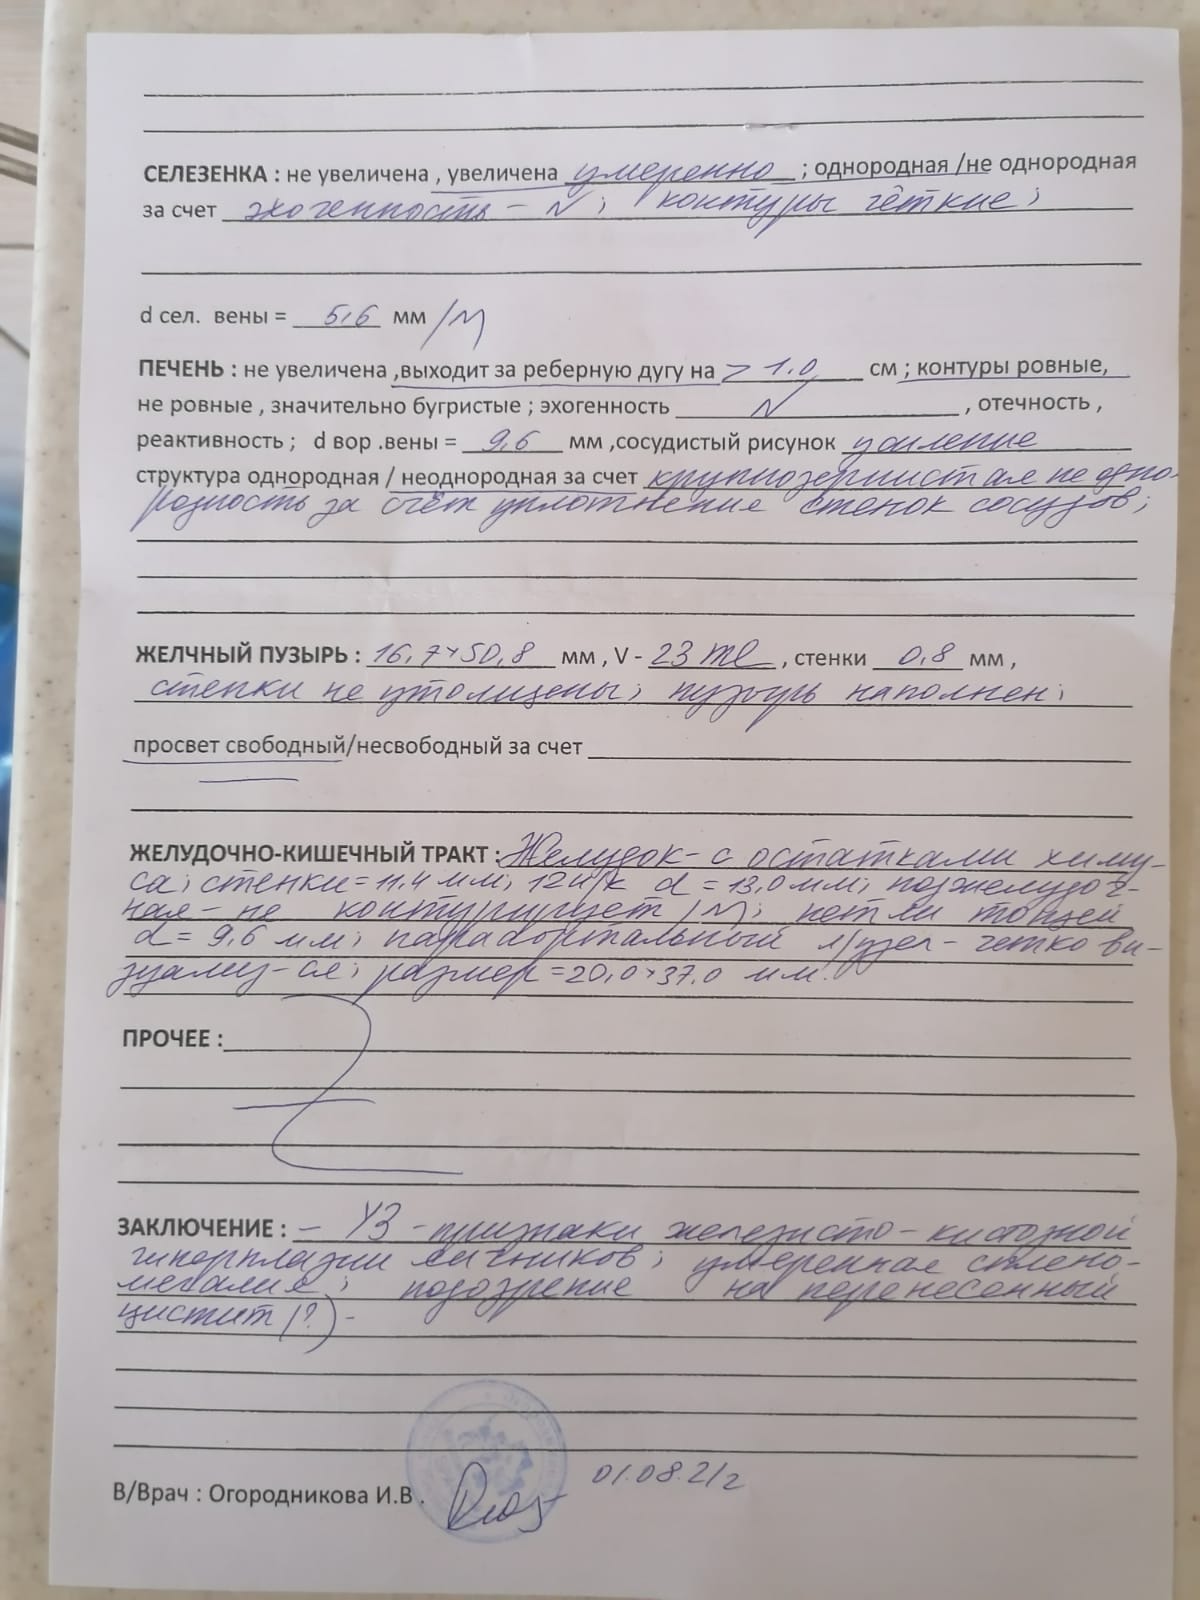 СЕЛЕЗЕНКА : не увеличена , увеличена умеренно ; однородная /не однородная
за счет эхогенность – N ; контуры чёткие ;
d сел. вены = 5,6 мм /N
ПЕЧЕНЬ : не увеличена ,выходит за реберную дугу на > 1.0 см ; контуры ровные,
не ровные , значительно бугристые ; эхогенность N , отечность ,
реактивность ; d вор .вены = 9,6 мм ,сосудистый рисунок усиление
структура однородная / неоднородная за счет крупнозернистая не одно-
родность за счёт уплотнение стенок сосудов ;
ЖЕЛЧНЫЙ ПУЗЫРЬ : 16,7×50,8 мм , V - 23 ml , стенки 0.8 мм ,
стенки не утолщены ; пузырь наполнен ;
просвет свободный/несвободный за счет
ЖЕЛУДОЧНО-КИШЕЧНЫЙ ТРАКТ : Желудок - с остатками химу-
са ; стенки = 11,4 мм ; 12п/к d = 13,0 мм ; поджелудоч-
ная - не контурирует /N ; петли тощей
d = 9,6 мм ; парааортальный л/узел - четко ви-
зуализ-ся ; размер = 20,0×37,0 мм.
ПРОЧЕЕ :
ЗАКЛЮЧЕНИЕ : – УЗ - признаки железисто - кистозной
гиперплазии яичников ; умеренная спено-
мегалия ; подозрение на перенесенный
цистит (?) -
В/Врач : Огородникова И.В .
01.08.21г